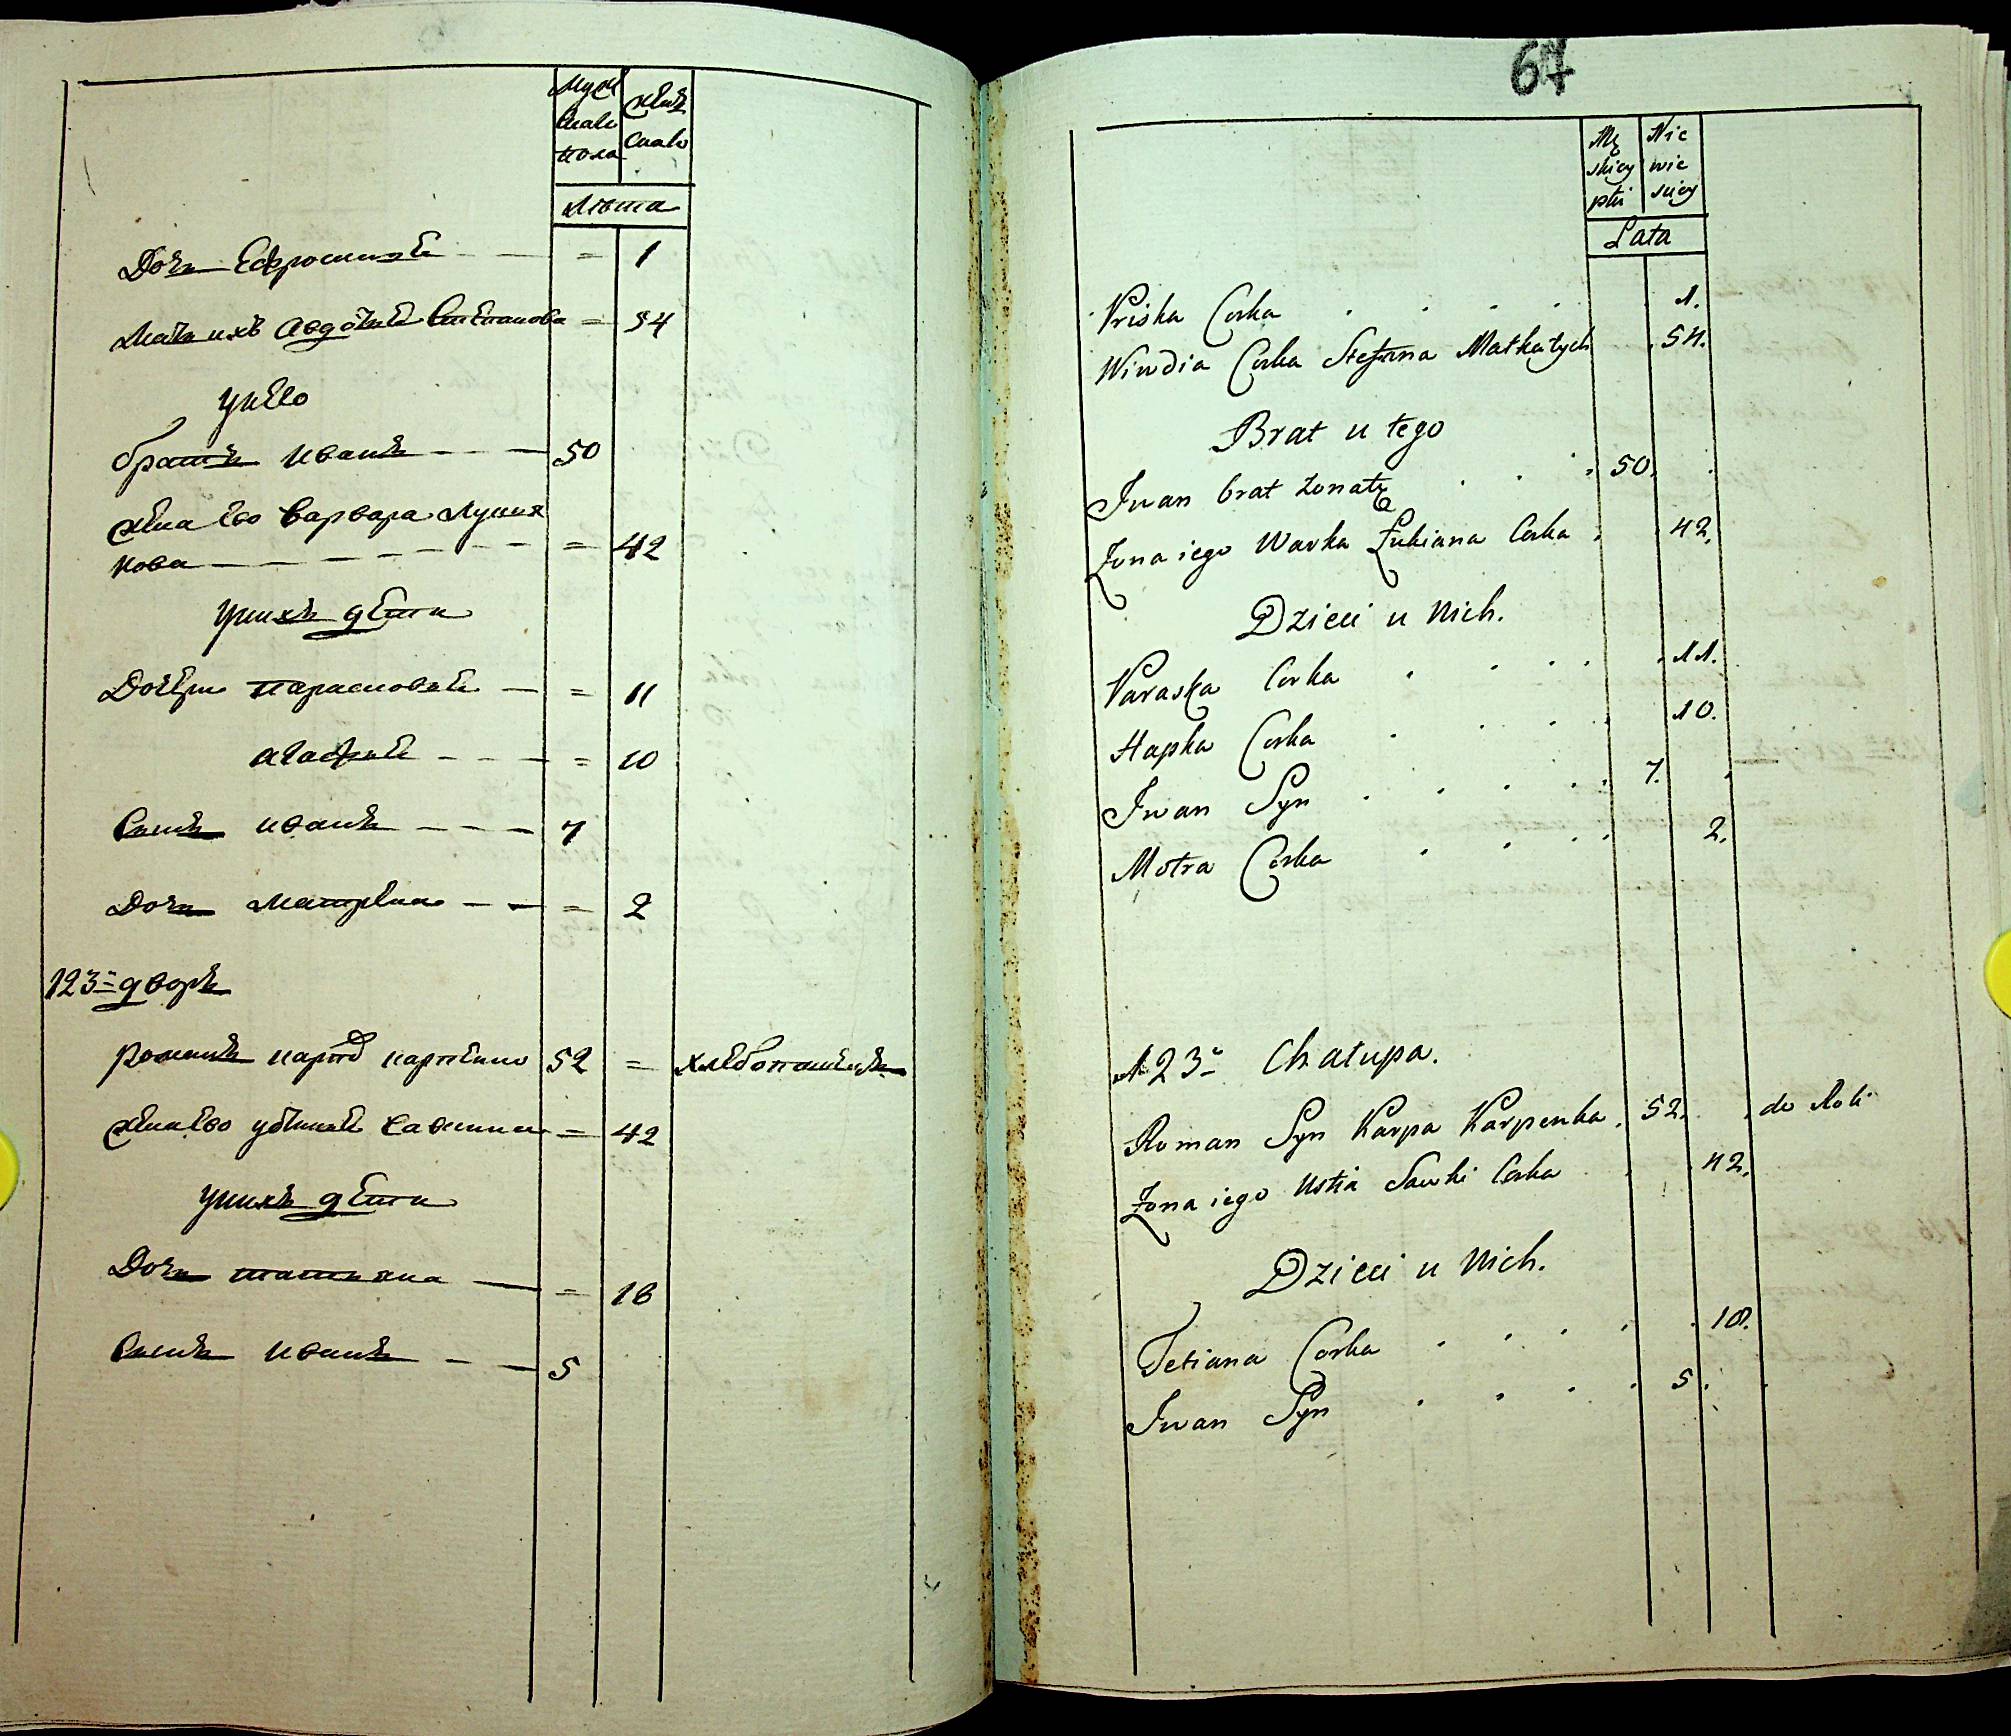 Муж
Женъ
скаго
скаго
пола
лѣта
Дочь Ефросинія = 1
Мать ихъ Авдотія Степанова = 54
У него
братъ Иванъ 50
Жена его Варвара Лукия
нова = 42
У нихъ дѣти
Дочери Парасковія = 11
Агафія = 10
Сынъ Иванъ 7
Дочь Матрена = 2
123й дворъ
Романъ Карпо Карпенко 52 = хлебопашецъ
Жена его Устинія Савина = 42
У нихъ дѣти
Дочь Татияна = 18
Сынъ Иванъ 5
67
Mę Nie
skiey wie
płci sciey
Lata
Priska Corka 1.
Wiwdia Corka Stefana Matka tych 54.
Brat u tego
Iwan brat żonaty 50.
Zona iego Warka Łukiana Corka 42.
Dzieci u Nich.
Paraska Corka 11.
Hapka Corka 10.
Iwan Syn 7.
Motra Corka 2.
123a Chałupa.
Roman Syn Karpa Karpenka 52. do Roli
Zona iego Ustia Sawki Corka 42.
Dzieci u Nich.
Tetiana Corka 18.
Iwan Syn 5.